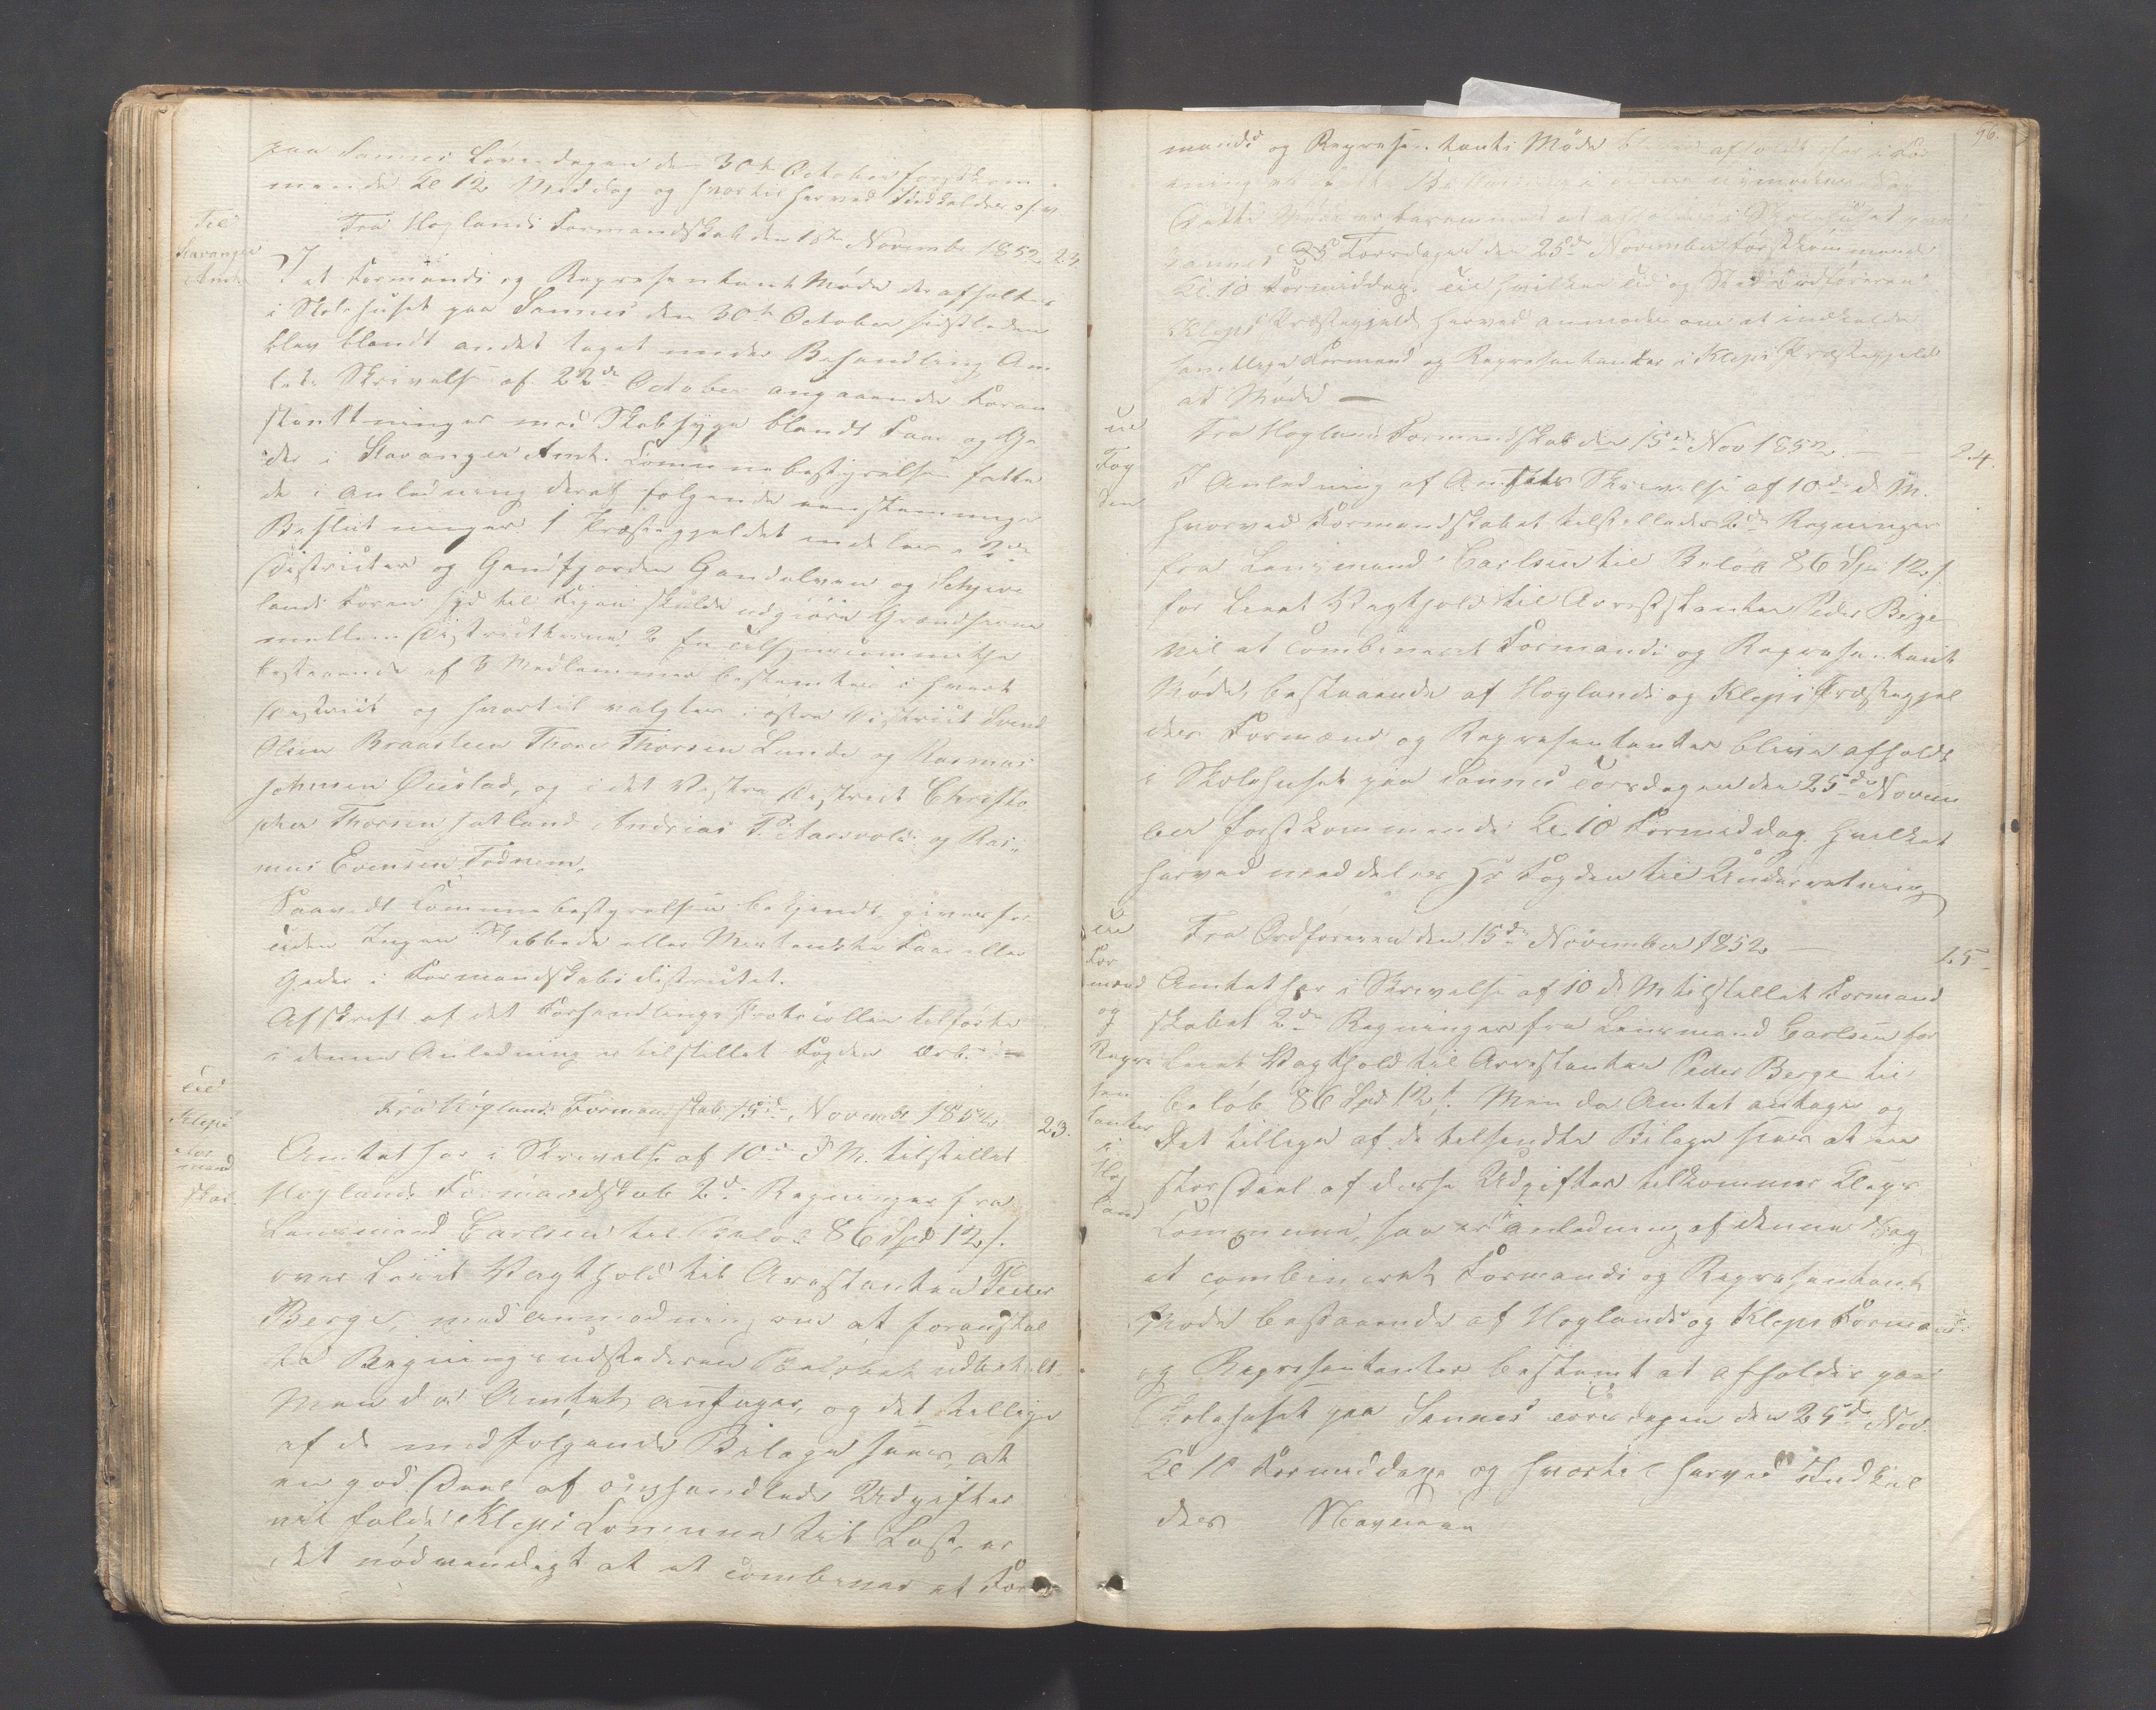 paa Sannes Løverdagen den 30te October førstkom-
mende Kl 12 Middag og hvortil herved Indkaldes o.s.v.
Til
Stavanger
Amt
Fra Høglands Formandskab den 1ste November 1852
I et Formands og Repræsentant Møde der afholdtes
i Skolehuset paa Sannes den 30te October sidstleden
blev blandt andet taget under Behandling Am
tets Skrivelse af 22de October angaaende Foran
staltninger mod Skabsyge blandt Faar og Ge
der i Stavanger Amt. Communebestyrelsen fatte
de i Anledning deraf følgende eenstemmige
Beslutninger 1 Præstegjeldet inddeles i 2de
Districter og Gandsfjorden Gandselven og
lands Foren syd til skulde udgiøre Grændserne
mellem Districkterne. 2 En Tilsynscommitte
bestaaende af 3 Medlemmer bestemtes i hvert
District og hvortil valgtes i østre District Svend
Olsen Braasteen Thore Thorsen Lunde og Rasmus
Johnsen Øustad, og i det Vestre District Christo
pher Thorsen Hatland Andreas T. Aarsvold og Ras-
mus Evensen Todnem.
Saavidt Communebestyrelsen bekjendt gives for
tiden Ingen Skabbede eller Mistænkte Faar eller
Geder i Formandskabsdistrictet.
Afskrift af det Forhandlings Protocollen tilførte
i denne Anledning er tilstillet Fogden Ærb.
Til
Kleps
For
mand
skab.
Fra Høglands Formandskab 15de November 1852
23.
Amtet har i Skrivelse af 10de d M. tilstillet
Høglands Formandskab 2de Regninger fra
Lensmand Carlsen til Beløb 86 Spd 12 s.
over Leiet Vagthold til Arestanten Peder
Berge, med Anmodning om at foranstal
te Regningsudstederen Beløbet udbetalt.
Men da Amtet antager, og det tillige
af de medfølgende Bilage sees, at
en god Deel af omhandlede Udgifter
vil falde Kleps Commune til Last, er
det nødvendigt at et combineret For
96.
mands og Repræsentants Møde bliver afholdt her i For
Dette Møde er berammet at afholdes i Skolehuset paa
Sannes Torsdagen den 25de November førstkommende
Kl. 10 Formiddag. Til hvilken Tid og Sted Ordføreren i
Kleps Præstegjeld herved anmodes om at indkalde
samtlige Formænd og Repræsentanter i Kleps Præstegjeld
at Møde —
Til
Fog
den
Fra Høglands Formandskab den 15de Nov 1852. —
24.
I Anledning af Amtets Skrivelse af 10de d M.
hvorved Formandskabet tilstilledes 2de Regninger
fra Lensmand Carlsen til Beløb 86 Spd 12 s.
for Leiet Vagthold til Arrestanten Peder Berge
vil et combineret Formands og Repræsentants
Møde, bestaaende af Høglands og Kleps Præstegjel
ders Formænd og Repræsentanter blive afholdt
i Skolehuset paa Sannes Torsdagen den 25de Novem
ber førstkommende Kl. 10 Formiddag. Hvilket
herved meddeles Hr Fogden til Underretning
Til
For
mænd
og
Repræ
sen
tanter
i
Høg
land
Fra Ordføreren den 15de November 1852 —
25
Amtet har i Skrivelse af 10 d M tilstillet Formand
skabet 2de Regninger fra Lensmand Carlsen for
Leiet Vagthold til Arrestanten Peder Berge til
beløb 86 Spd 12 s. Men da Amtet antager og
Det tillige af de tilsendte Bilage sees at en
stor Deel af disse Udgifter tilkommer Kleps
Commune, saa er i Anledning af denne Sag
et combineret Formands og Repræsentant
Møde bestaaende af Høglands og Kleps Formænd
og Repræsentanter bestemt at afholdes paa
Skolehuset paa Sannes Torsdagen den 25de Nov.
Kl 10 Formiddag og hvortil herved Indkal
des